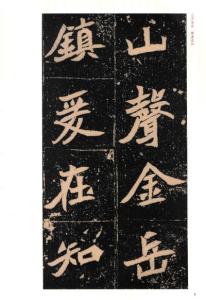 山聲金岳
鎮爰在知